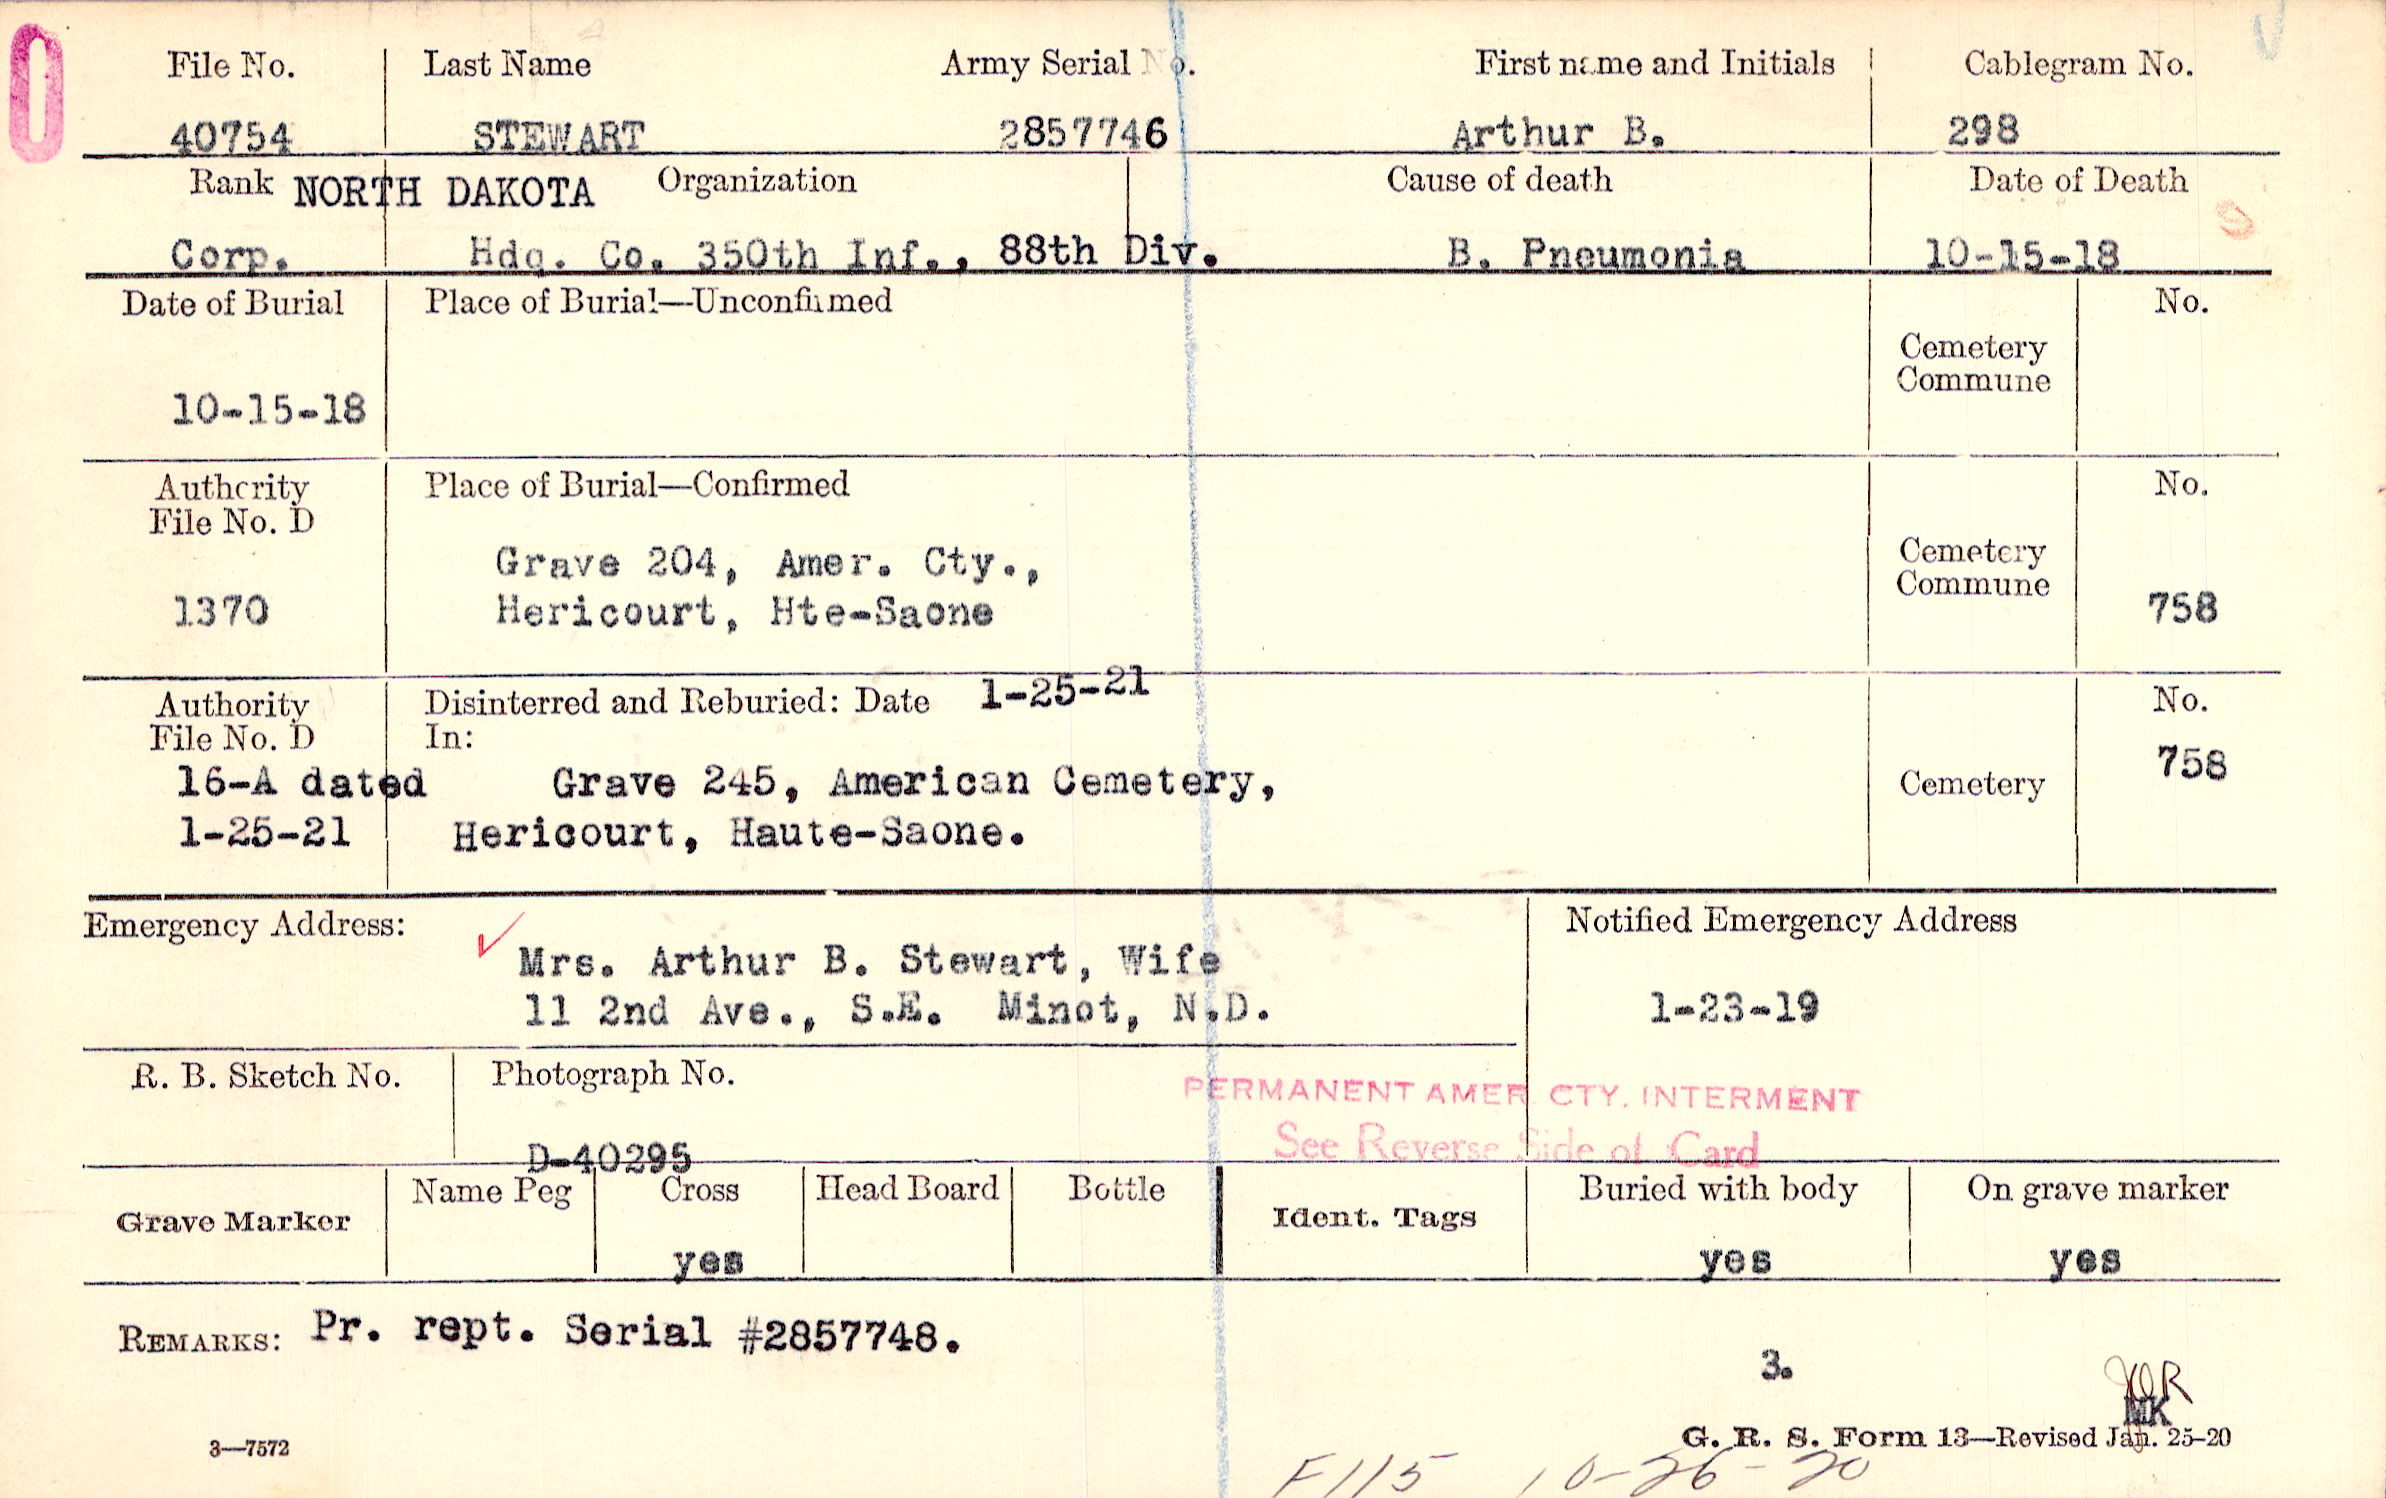 File No. Last Name Army Serial No. First name and Initials Cablegram No.
40754 STEWART 2857746 Arthur B. 298
Rank NORTH DAKOTA Organization Cause of death Date of Death
Corp. Hdq. Co. 350th Inf., 88th Div. B. Pneumonia 10-15-18
Date of Burial Place of Burial—Unconfirmed No.
Cemetery
Commune
10-15-18
Authority Place of Burial—Confirmed No.
File No. D
Grave 204, Amer. Cty., Cemetery
Commune
1370 Hericourt, Hte-Saone 758
Authority Disinterred and Reburied: Date 1-25-21 No.
File No. D In:
16-A dated Grave 245, American Cemetery, Cemetery 758
1-25-21 Hericourt, Haute-Saone.
Emergency Address: Notified Emergency Address
Mrs. Arthur B. Stewart, Wife
11 2nd Ave., S.E. Minot, N.D. 1-23-19
R. B. Sketch No. Photograph No.
PERMANENT AMER CTY. INTERMENT
See Reverse Side of Card
D-40295
Grave Marker Name Peg Cross Head Board Bottle Ident. Tags Buried with body On grave marker
yes yes yes
REMARKS: Pr. rept. Serial #2857748.
3.
MK
3—7572 G. R. S. Form 13—Revised Jan. 25-20
F115 10-26-20